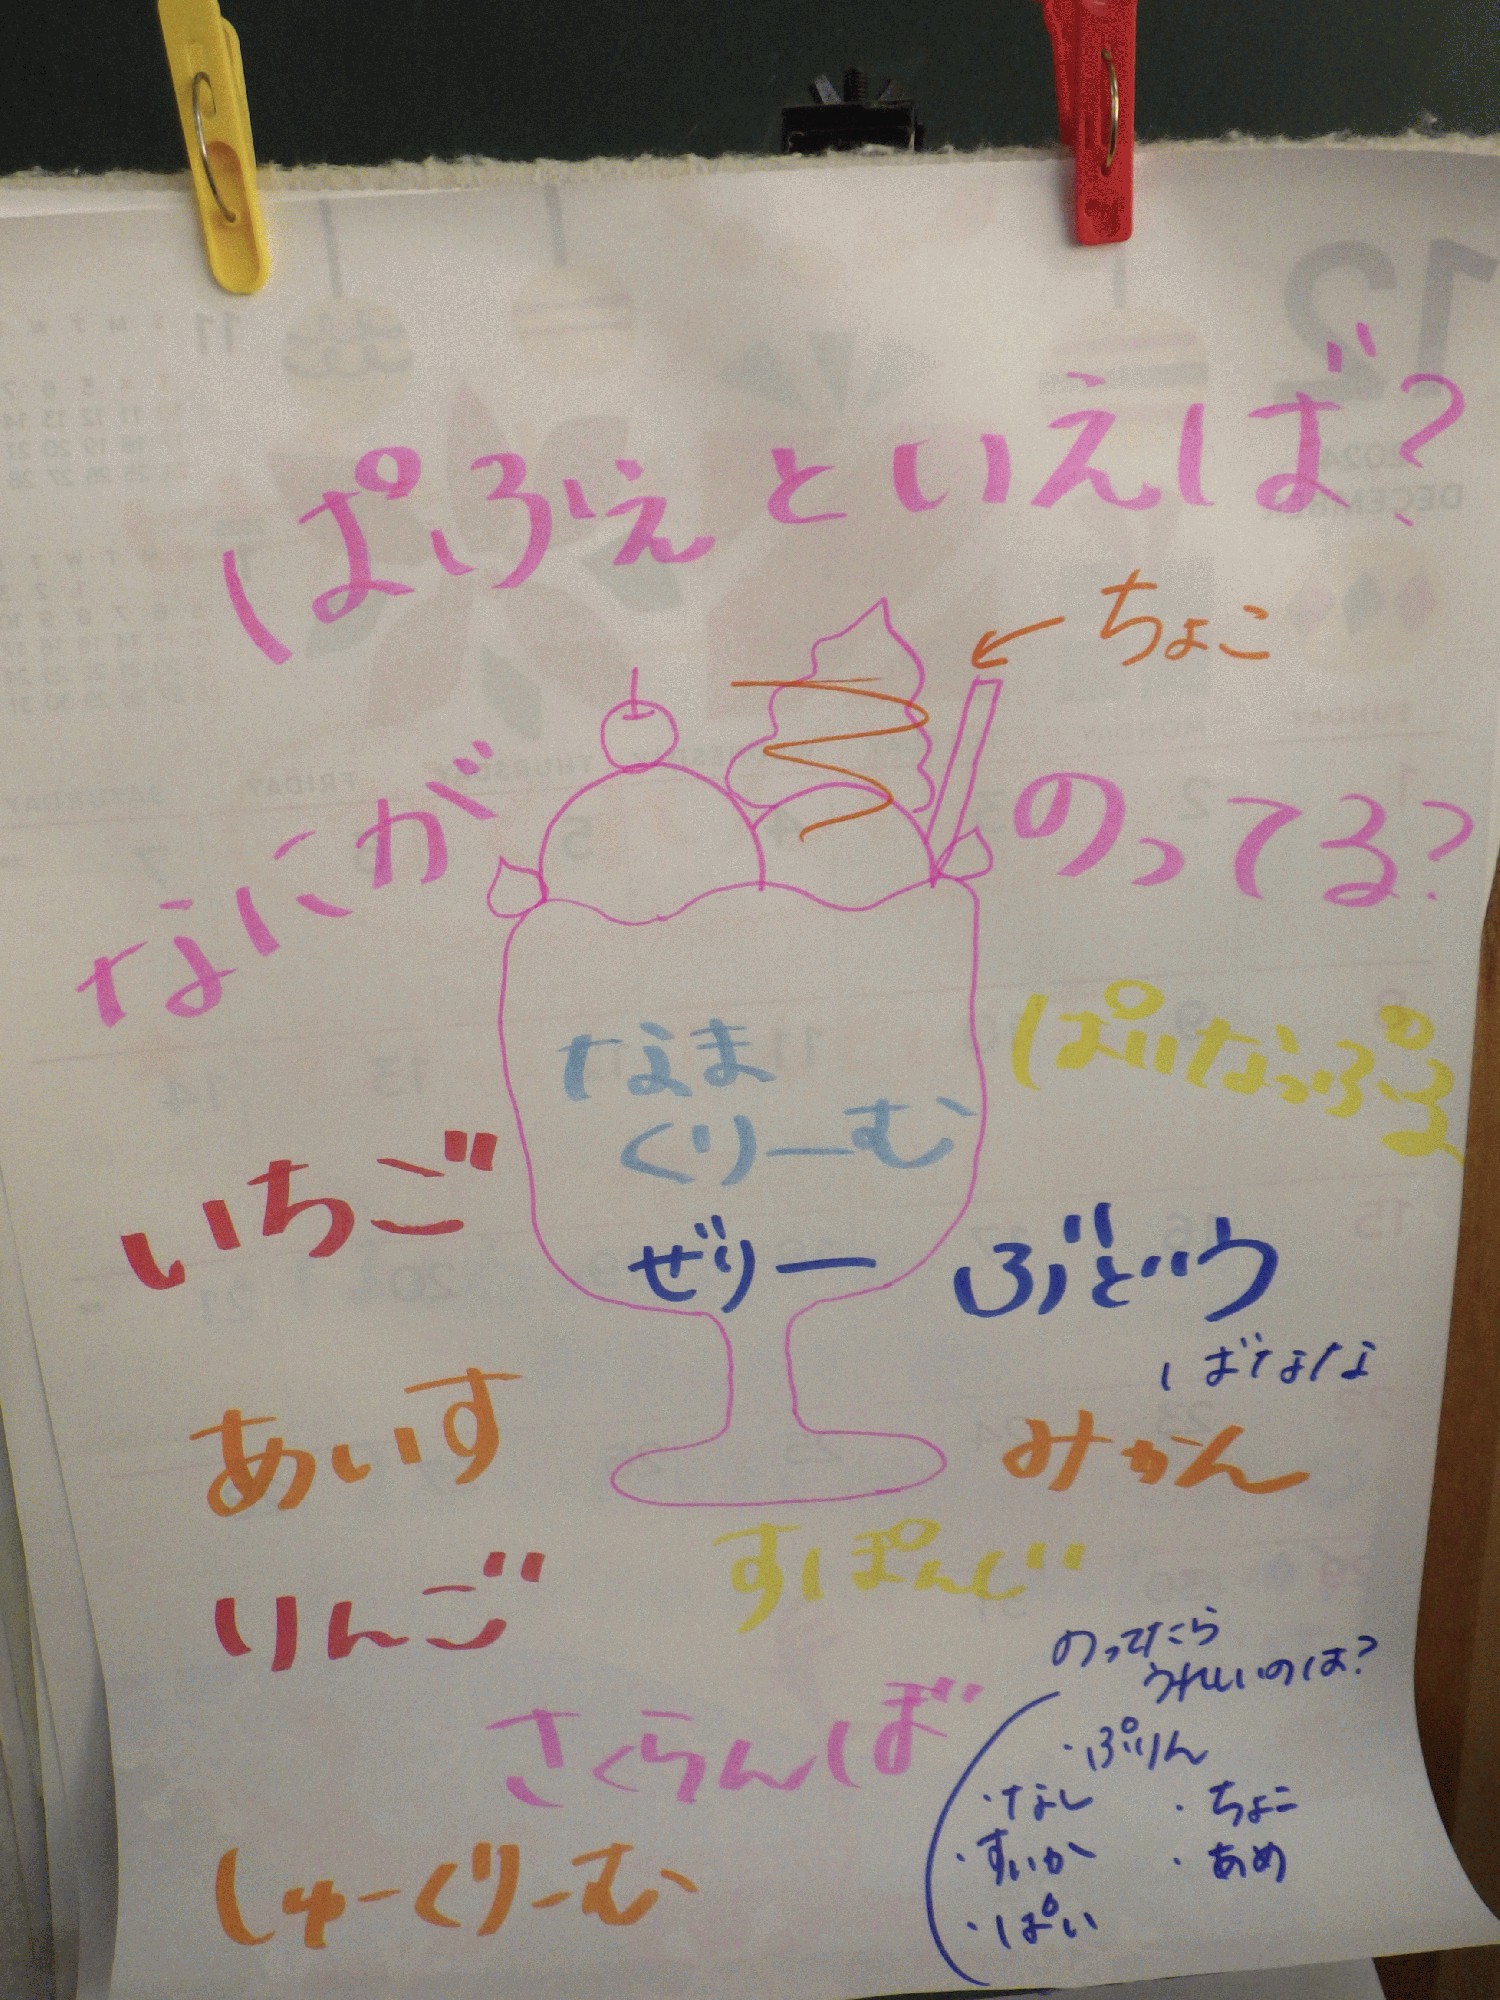 ぱふぇといえば?
ちょこ
なにが のってる?
なま
くりーむ
ぱいなっぷる
いちご
ぜりー
ぶどう
ばなな
あいす
みかん
りんご
すぽんじ
さくらんぼ
しゅーくりーむ
のってたら
うれしいのは?
・ぷりん
・なし ・ちょこ
・すいか ・あめ
・ぱい